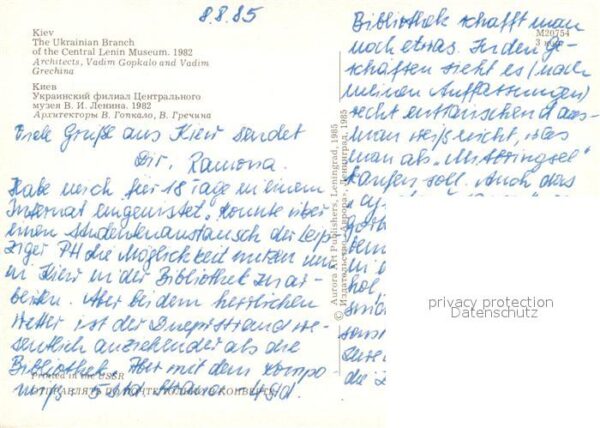 8.8.85
Kiev
The Ukrainian Branch
of the Central Lenin Museum. 1982
Architects, Vadim Gopkalo and Vadim
Grechina
Киев
Украинский филиал Центрального
музея В. И. Ленина. 1982
Архитекторы В. Гопкало, В. Гречина
Viele Grüße aus Kiew sendet
Dir, Ramona.
Habe mich hier 18 Tage in einem
Internat eingenistet. Konnte über
einen Studentenaustausch der Leip-
ziger PH die Möglichkeit nutzen um
in Kiew in der Bibliothek zu ar-
beiten. Aber bei dem herrlichen
Wetter ist der Dneprstrand we-
sentlich anziehender als die
Bibliothek. Aber mit dem Kompro-
miß: 5 Std Strand - 4 Std.
Printed in the USSR
ОТПРАВЛЯТЬ ПО ПОЧТЕ ТОЛЬКО В КОНВЕРТЕ
© Aurora Art Publishers, Leningrad, 1985
© Издательство «Аврора», Ленинград, 1985
M20754
Bibliothek schafft man
noch etwas. In den Ge-
schäften sieht es (nach
meinen Auffassungen)
recht enttäuschend aus-
man weiß nicht, was
man als „Mitbringsel"
kaufen soll. Auch das
privacy protection
Datenschutz